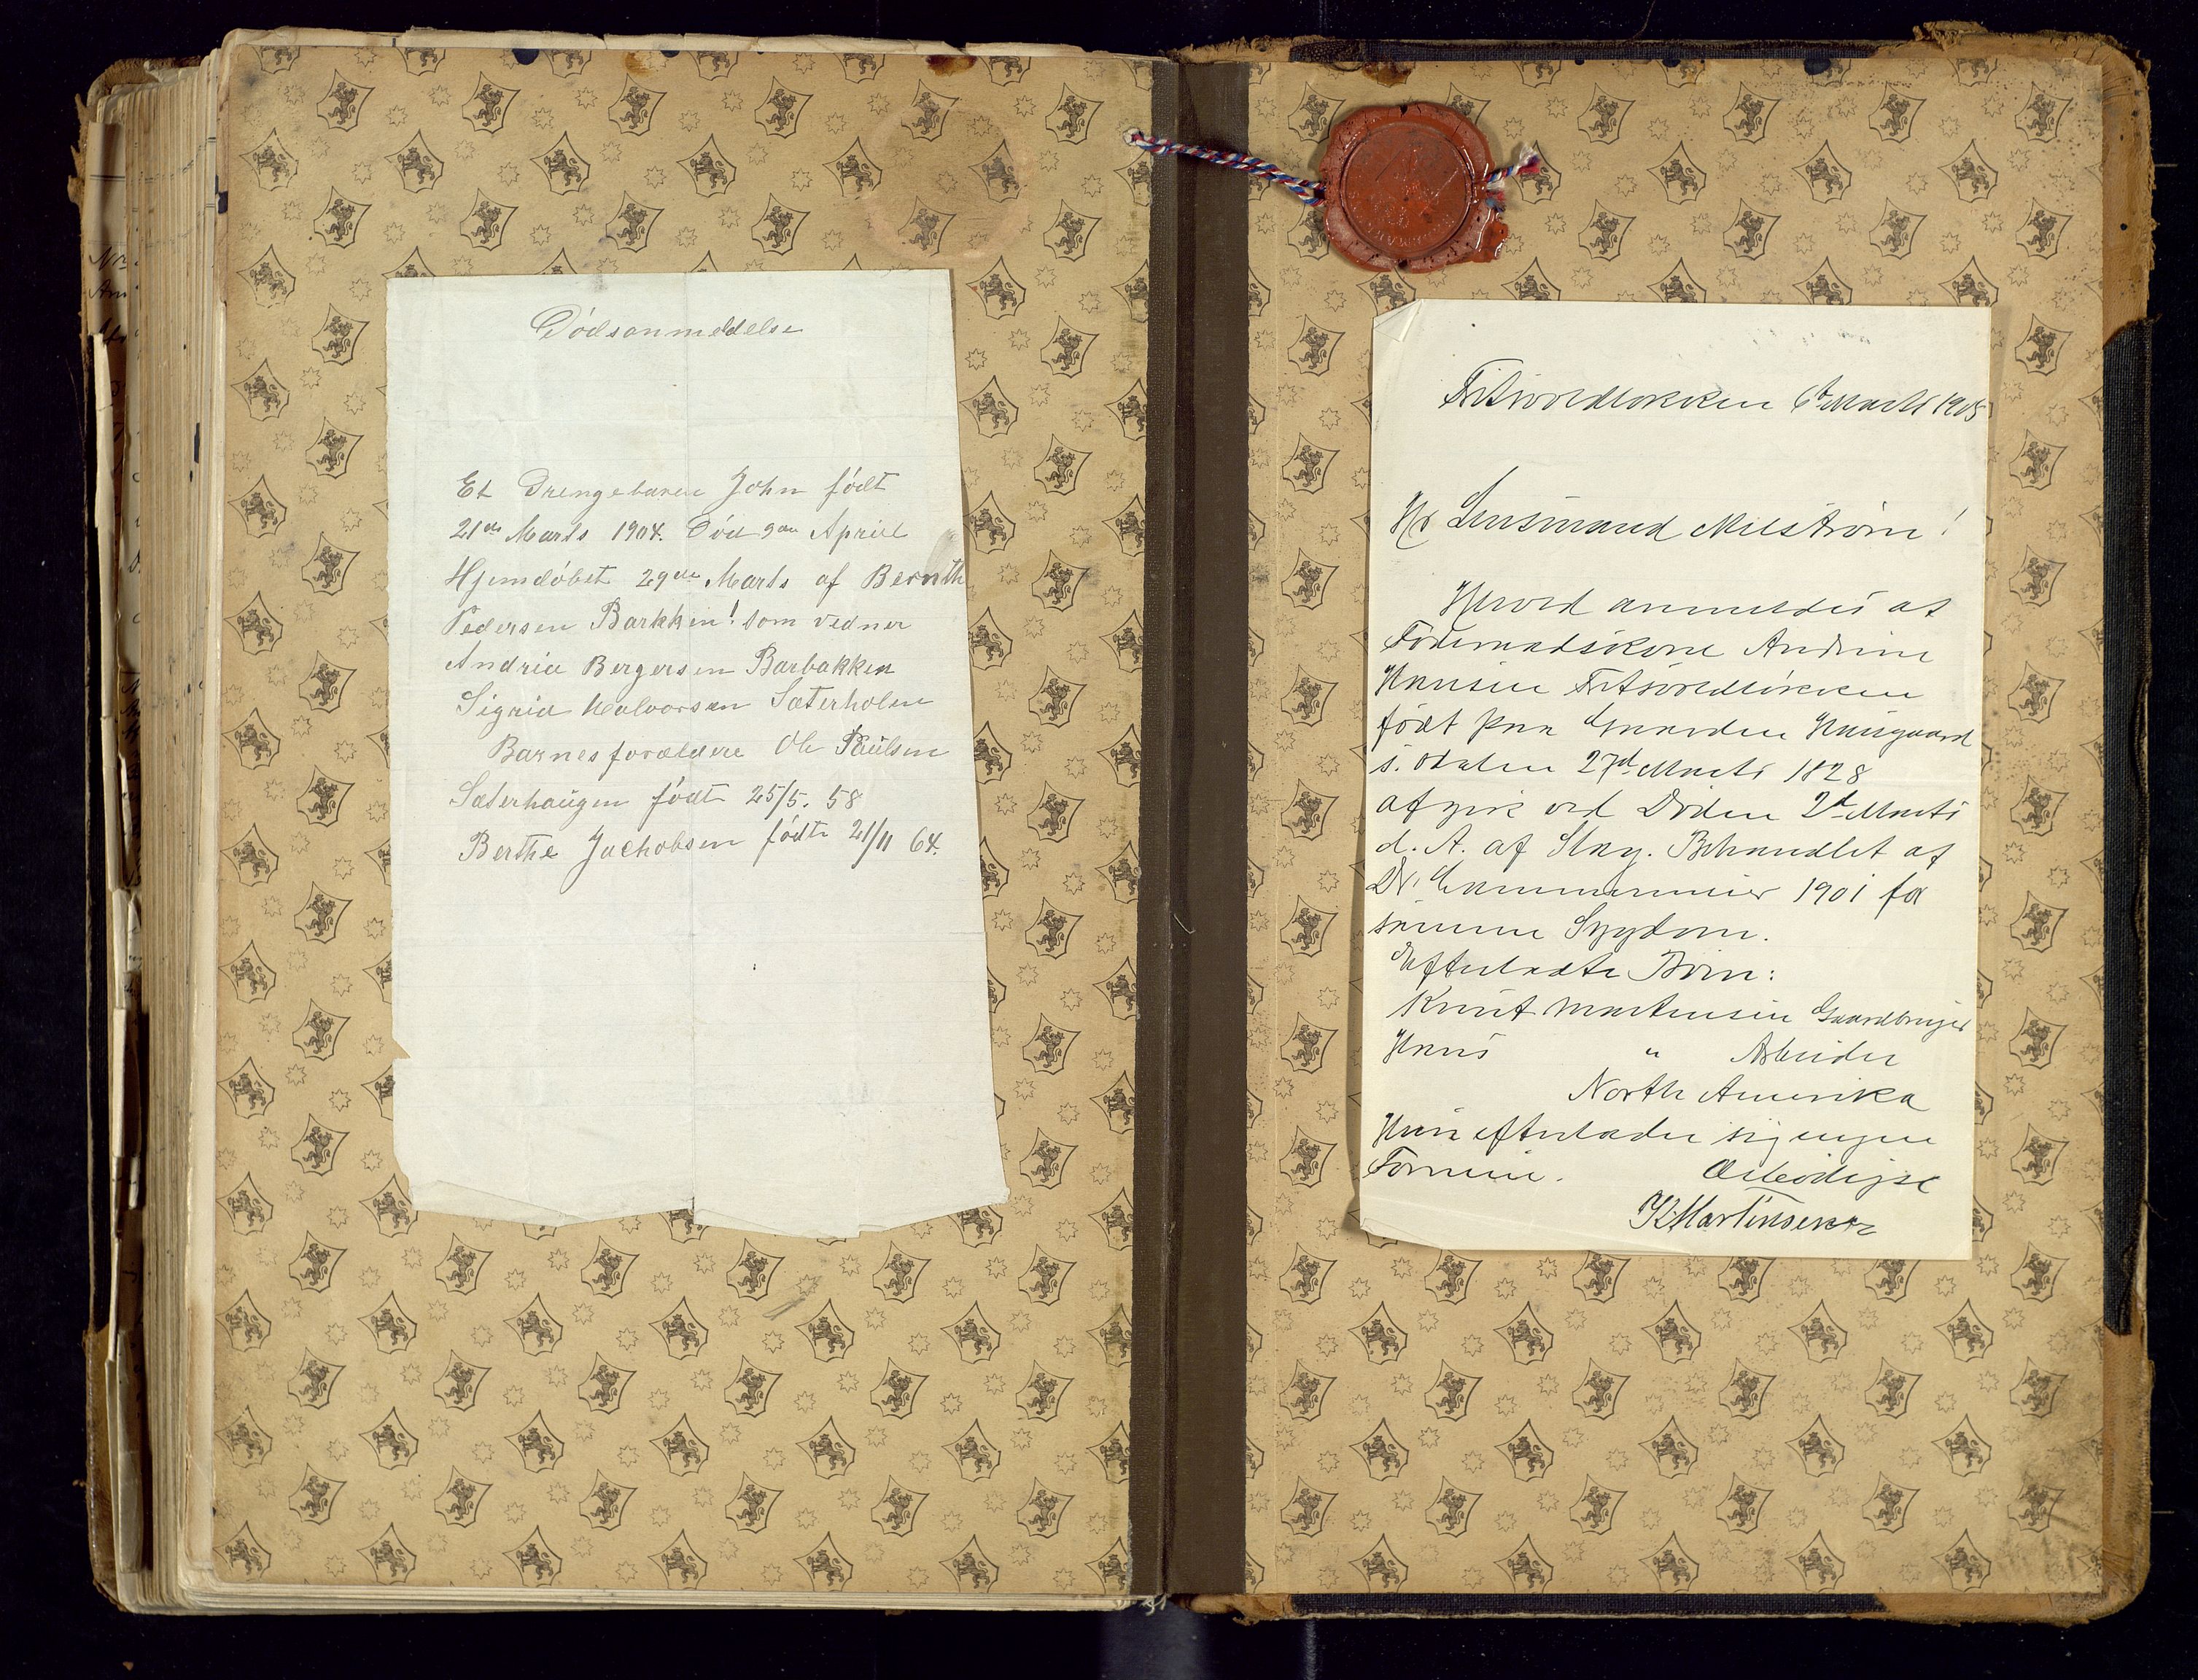 Dödsanmeldelse
Et Drengebaren John født
21de Marts 1904. Död 9de Apriel
Hjemdöbet 29de Marts af Bernth
Pedersen Barkken! som vedner
Andria Bergersen Barbakken
Sigrid Halvorsen Sæterholen
Barnes forældere Ole Paulsen
Sæterhaugen födt 25/5. 58
Berthe Jachobsen födt 21/11 64.
6te Marts 1905
Hr Lensmand Milström!
Herved anmeldes at
Föderaadskone Andrine
Hansen
født paa Gaarden Huusgaard
s. Odalen 27d Marts 1828
afgik ved Döden 2d Marts
d. A. af Slag. Behandlet af
Dr. 1901 for
samme Sygdom.
Efterladte Börn:
Knut Martinsen Gaardbruger
Hans " Arbeider
North Amerika
Hun efterlader sig ingen
Formue. Ærbödigst
K. Martinsen